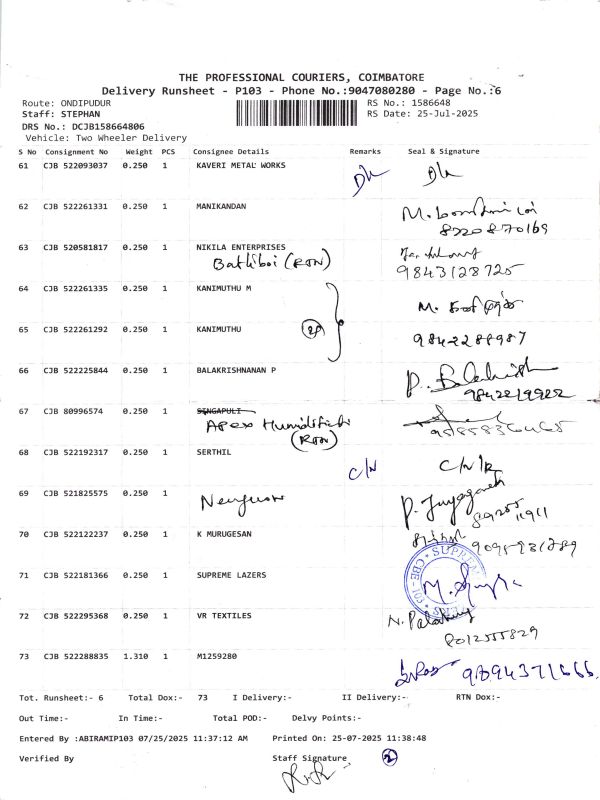 THE PROFESSIONAL COURIERS, COIMBATORE
Delivery Runsheet - P103 - Phone No.:9047080280 - Page No.:6
Route: ONDIPUDUR RS No.: 1586648
Staff: STEPHAN RS Date: 25-Jul-2025
DRS No.: DCJB158664806
Vehicle: Two Wheeler Delivery
S No Consignment No Weight PCS Consignee Details Remarks Seal & Signature
61 CJB 522093037 0.250 1 KAVERI METAL WORKS
62 CJB 522261331 0.250 1 MANIKANDAN
8220870169
63 CJB 520581817 0.250 1 NIKILA ENTERPRISES
Batliboi (RTN) 9843128725
64 CJB 522261335 0.250 1 KANIMUTHU M
65 CJB 522261292 0.250 1 KANIMUTHU
9842288987
66 CJB 522225844 0.250 1 BALAKRISHNANAN P
P. Balakrish
9842219922
67 CJB 80996574 0.250 1 SINGAPULI
Apex Humidifich
(RTN)
68 CJB 522192317 0.250 1 SERTHIL
C/N
69 CJB 521825575 0.250 1
70 CJB 522122237 0.250 1 K MURUGESAN
71 CJB 522181366 0.250 1 SUPREME LAZERS
SUPREM
72 CJB 522295368 0.250 1 VR TEXTILES
8012555829
73 CJB 522288835 1.310 1 M1259280
9894371666
Tot. Runsheet:- 6 Total Dox:- 73 I Delivery:- II Delivery:- RTN Dox:-
Out Time:- In Time:- Total POD:- Delvy Points:-
Entered By :ABIRAMIP103 07/25/2025 11:37:12 AM Printed On: 25-07-2025 11:38:48
Verified By Staff Signature 2